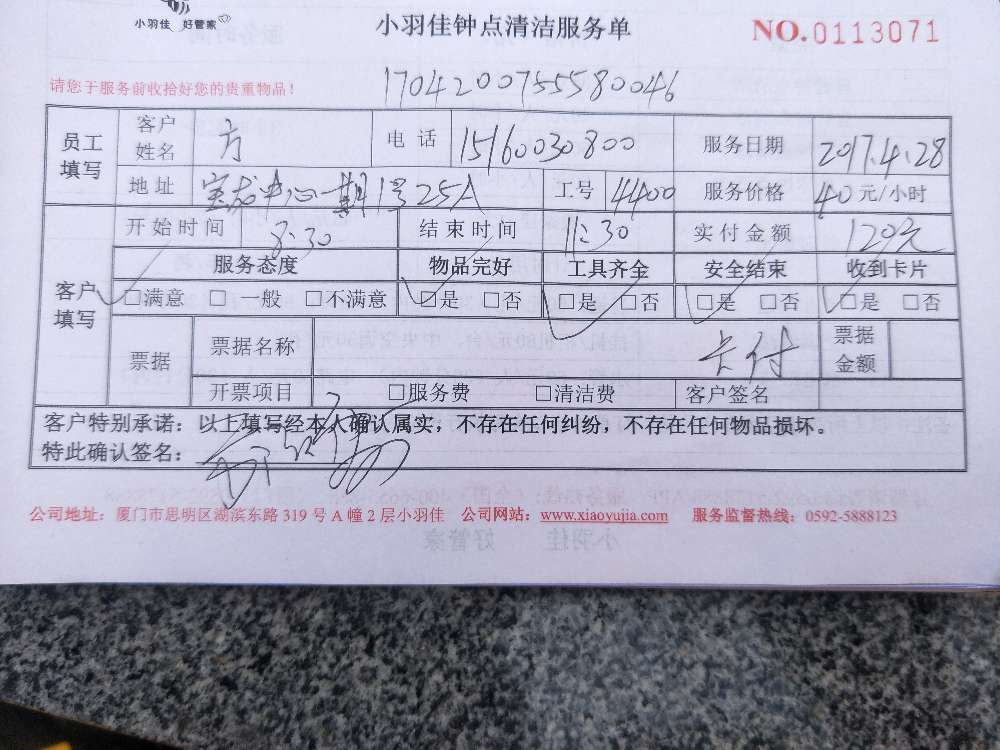 小羽佳 好管家
小羽佳钟点清洁服务单 NO.0113071
请您于服务前收拾好您的贵重物品！ 17042007555580046
员工填写 客户姓名 方 电话 15160030800 服务日期 2017.4.28
地址 宝龙中心一期1号25A 工号 44400 服务价格 40元/小时
客户填写 开始时间 8:30 结束时间 11:30 实付金额 120元
服务态度 物品完好 工具齐全 安全结束 收到卡片
□满意 □一般 □不满意 □是 □否 □是 □否 □是 □否 □是 □否
票据 票据名称 卡付 票据金额
开票项目 □服务费 □清洁费 客户签名
客户特别承诺：以上填写经本人确认属实，不存在任何纠纷，不存在任何物品损坏。
特此确认签名：
公司地址：厦门市思明区湖滨东路 319 号 A 幢 2 层小羽佳 公司网站：www.xiaoyujia.com 服务监督热线：0592-5888123